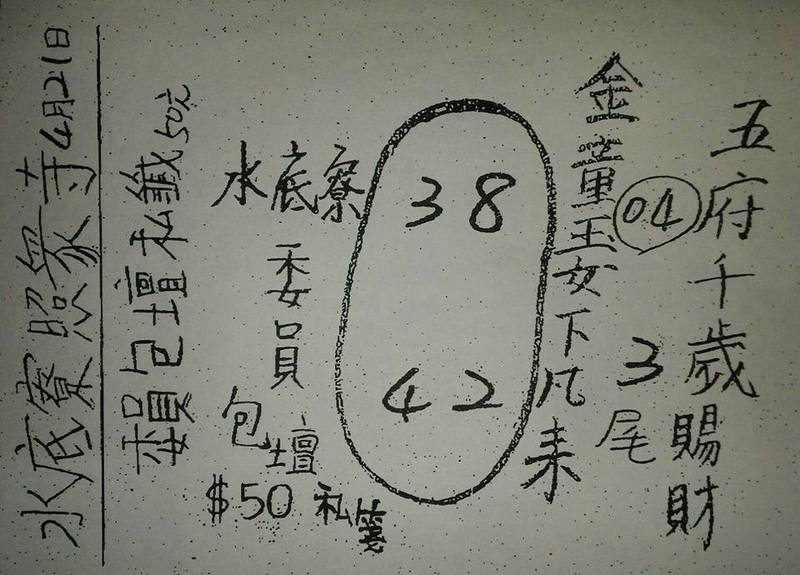 五府千歲賜財
04
3尾
金童玉女下凡来
38
42
水底寮
委員
包壇
$50 私
委員包壇私籤 50元
水底寮照眾寺4月21日